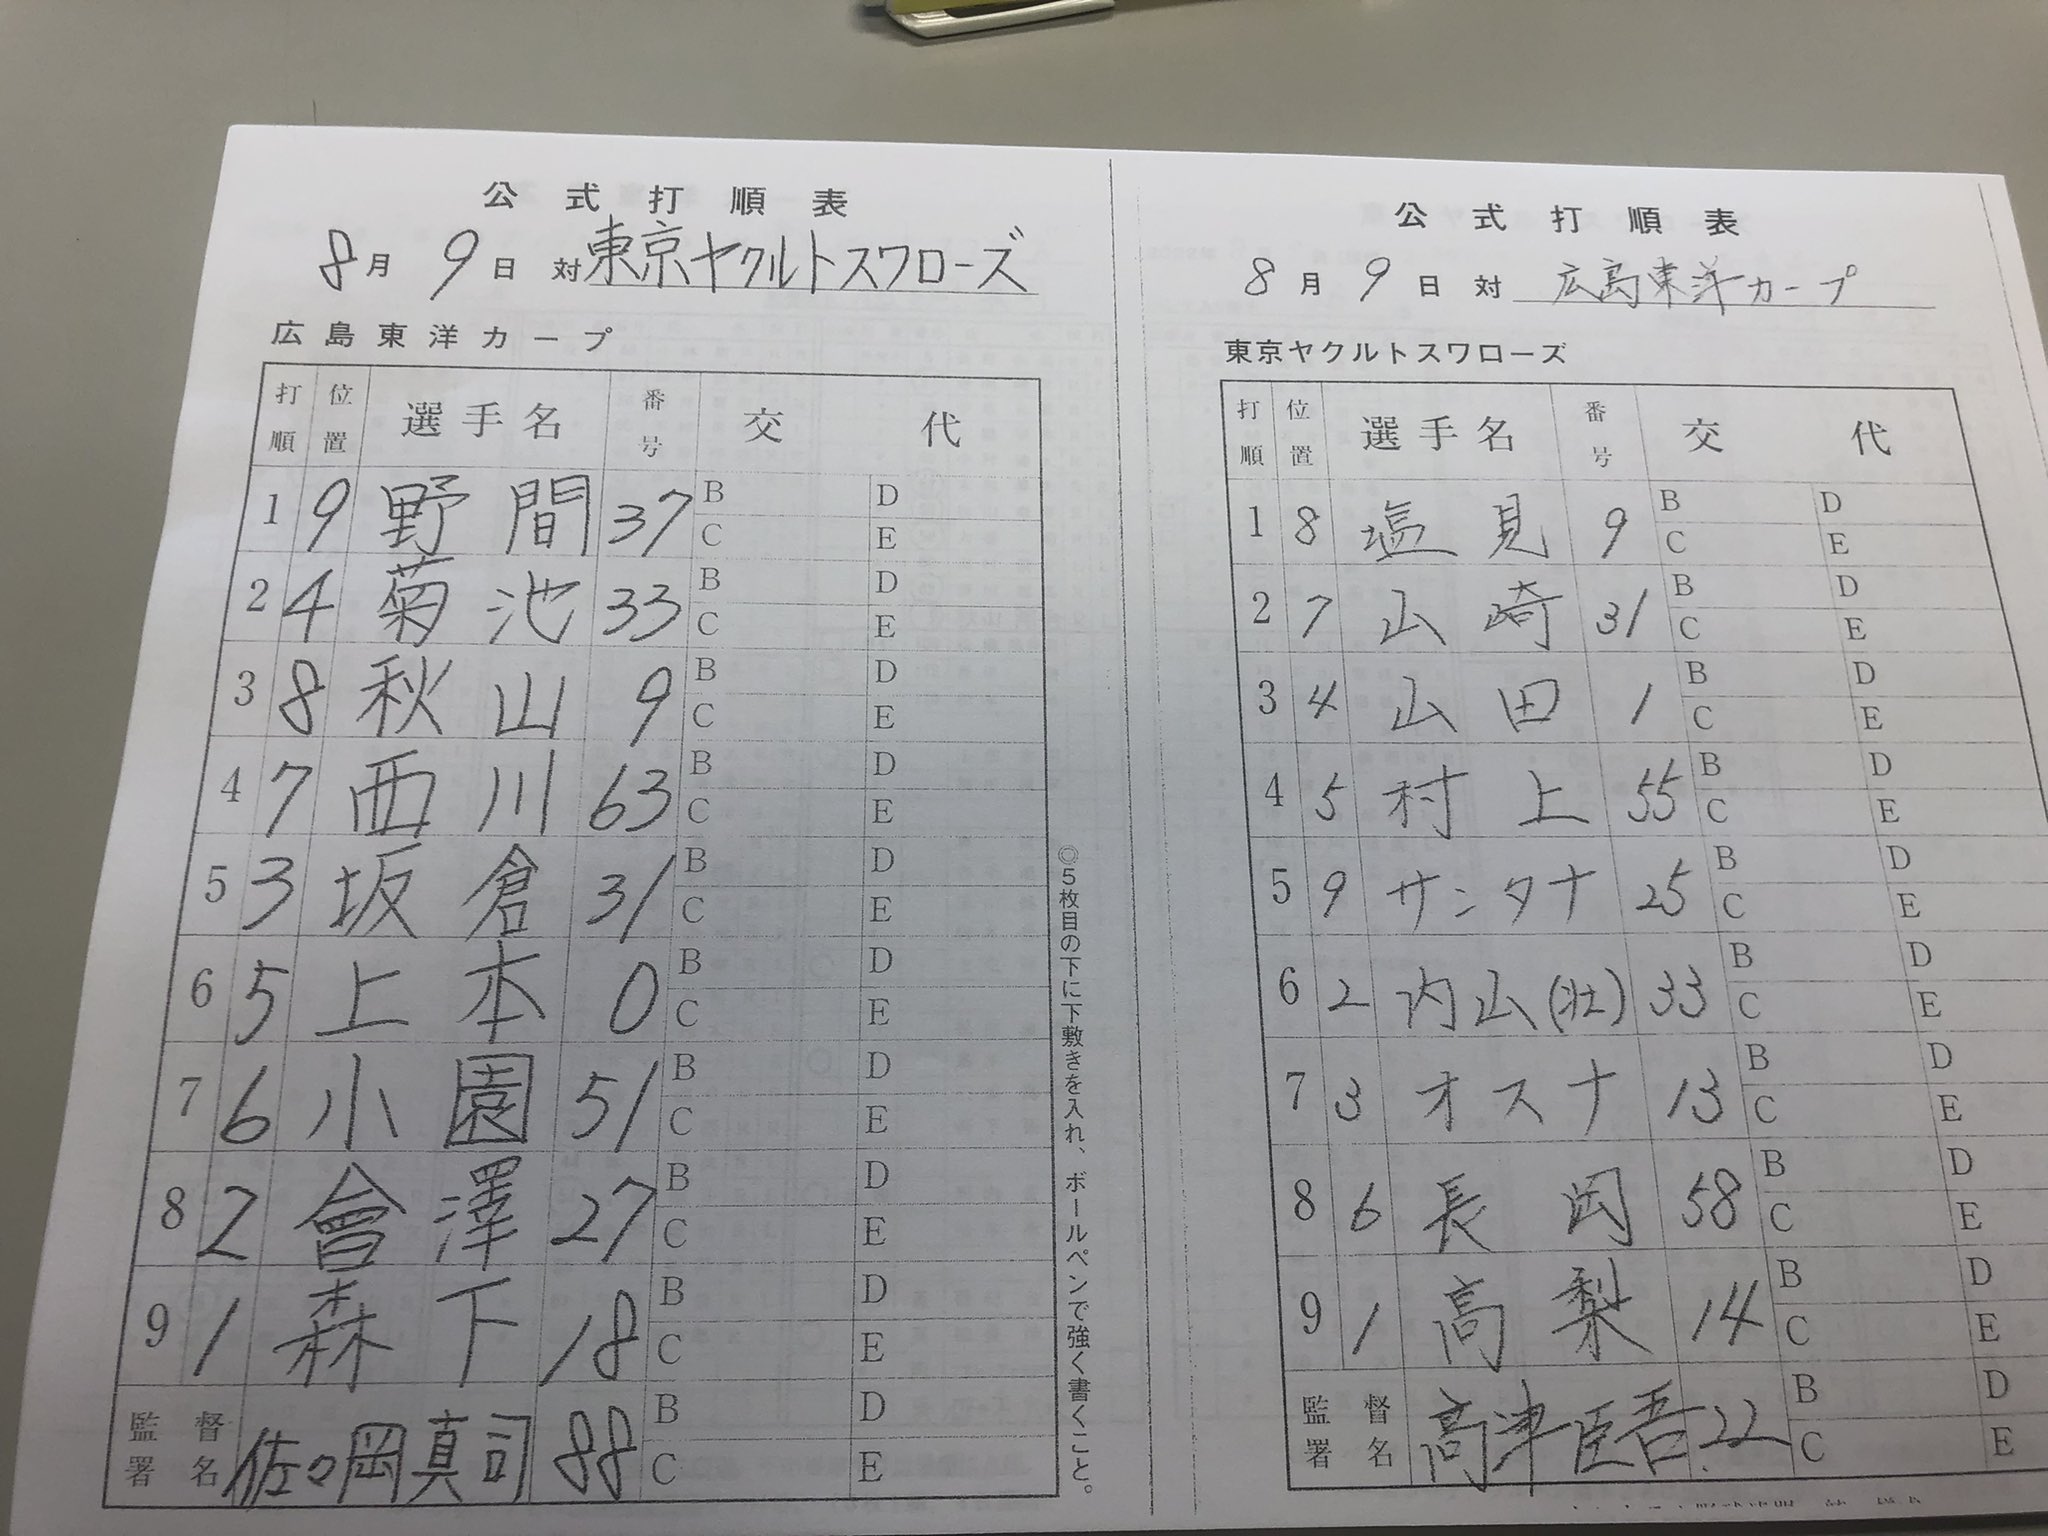 公式打順表
8月9日 対 東京ヤクルトスワローズ
広島東洋カープ
打順 位置 選手名 番号 交代
1 9 野間 37 B D
C E
2 4 菊池 33 B D
C E
3 8 秋山 9 B D
C E
4 7 西川 63 B D
C E
5 3 坂倉 31 B D
C E
6 5 上本 0 B D
C E
7 6 小園 51 B D
C E
8 2 會澤 27 B D
C E
9 1 森下 18 B D
C E
監督署名 佐々岡真司 88 B D
C E
◎5枚目の下に下敷きを入れ、ボールペンで強く書くこと。
公式打順表
8月9日 対 広島東洋カープ
東京ヤクルトスワローズ
打順 位置 選手名 番号 交代
1 8 塩見 9 B D
C E
2 7 山崎 31 B D
C E
3 4 山田 1 B D
C E
4 5 村上 55 B D
C E
5 9 サンタナ 25 B D
C E
6 2 内山(壮) 33 B D
C E
7 3 オスナ 13 B D
C E
8 6 長岡 58 B D
C E
9 1 高梨 14 B D
C E
監督署名 高津臣吾 22 B D
C E